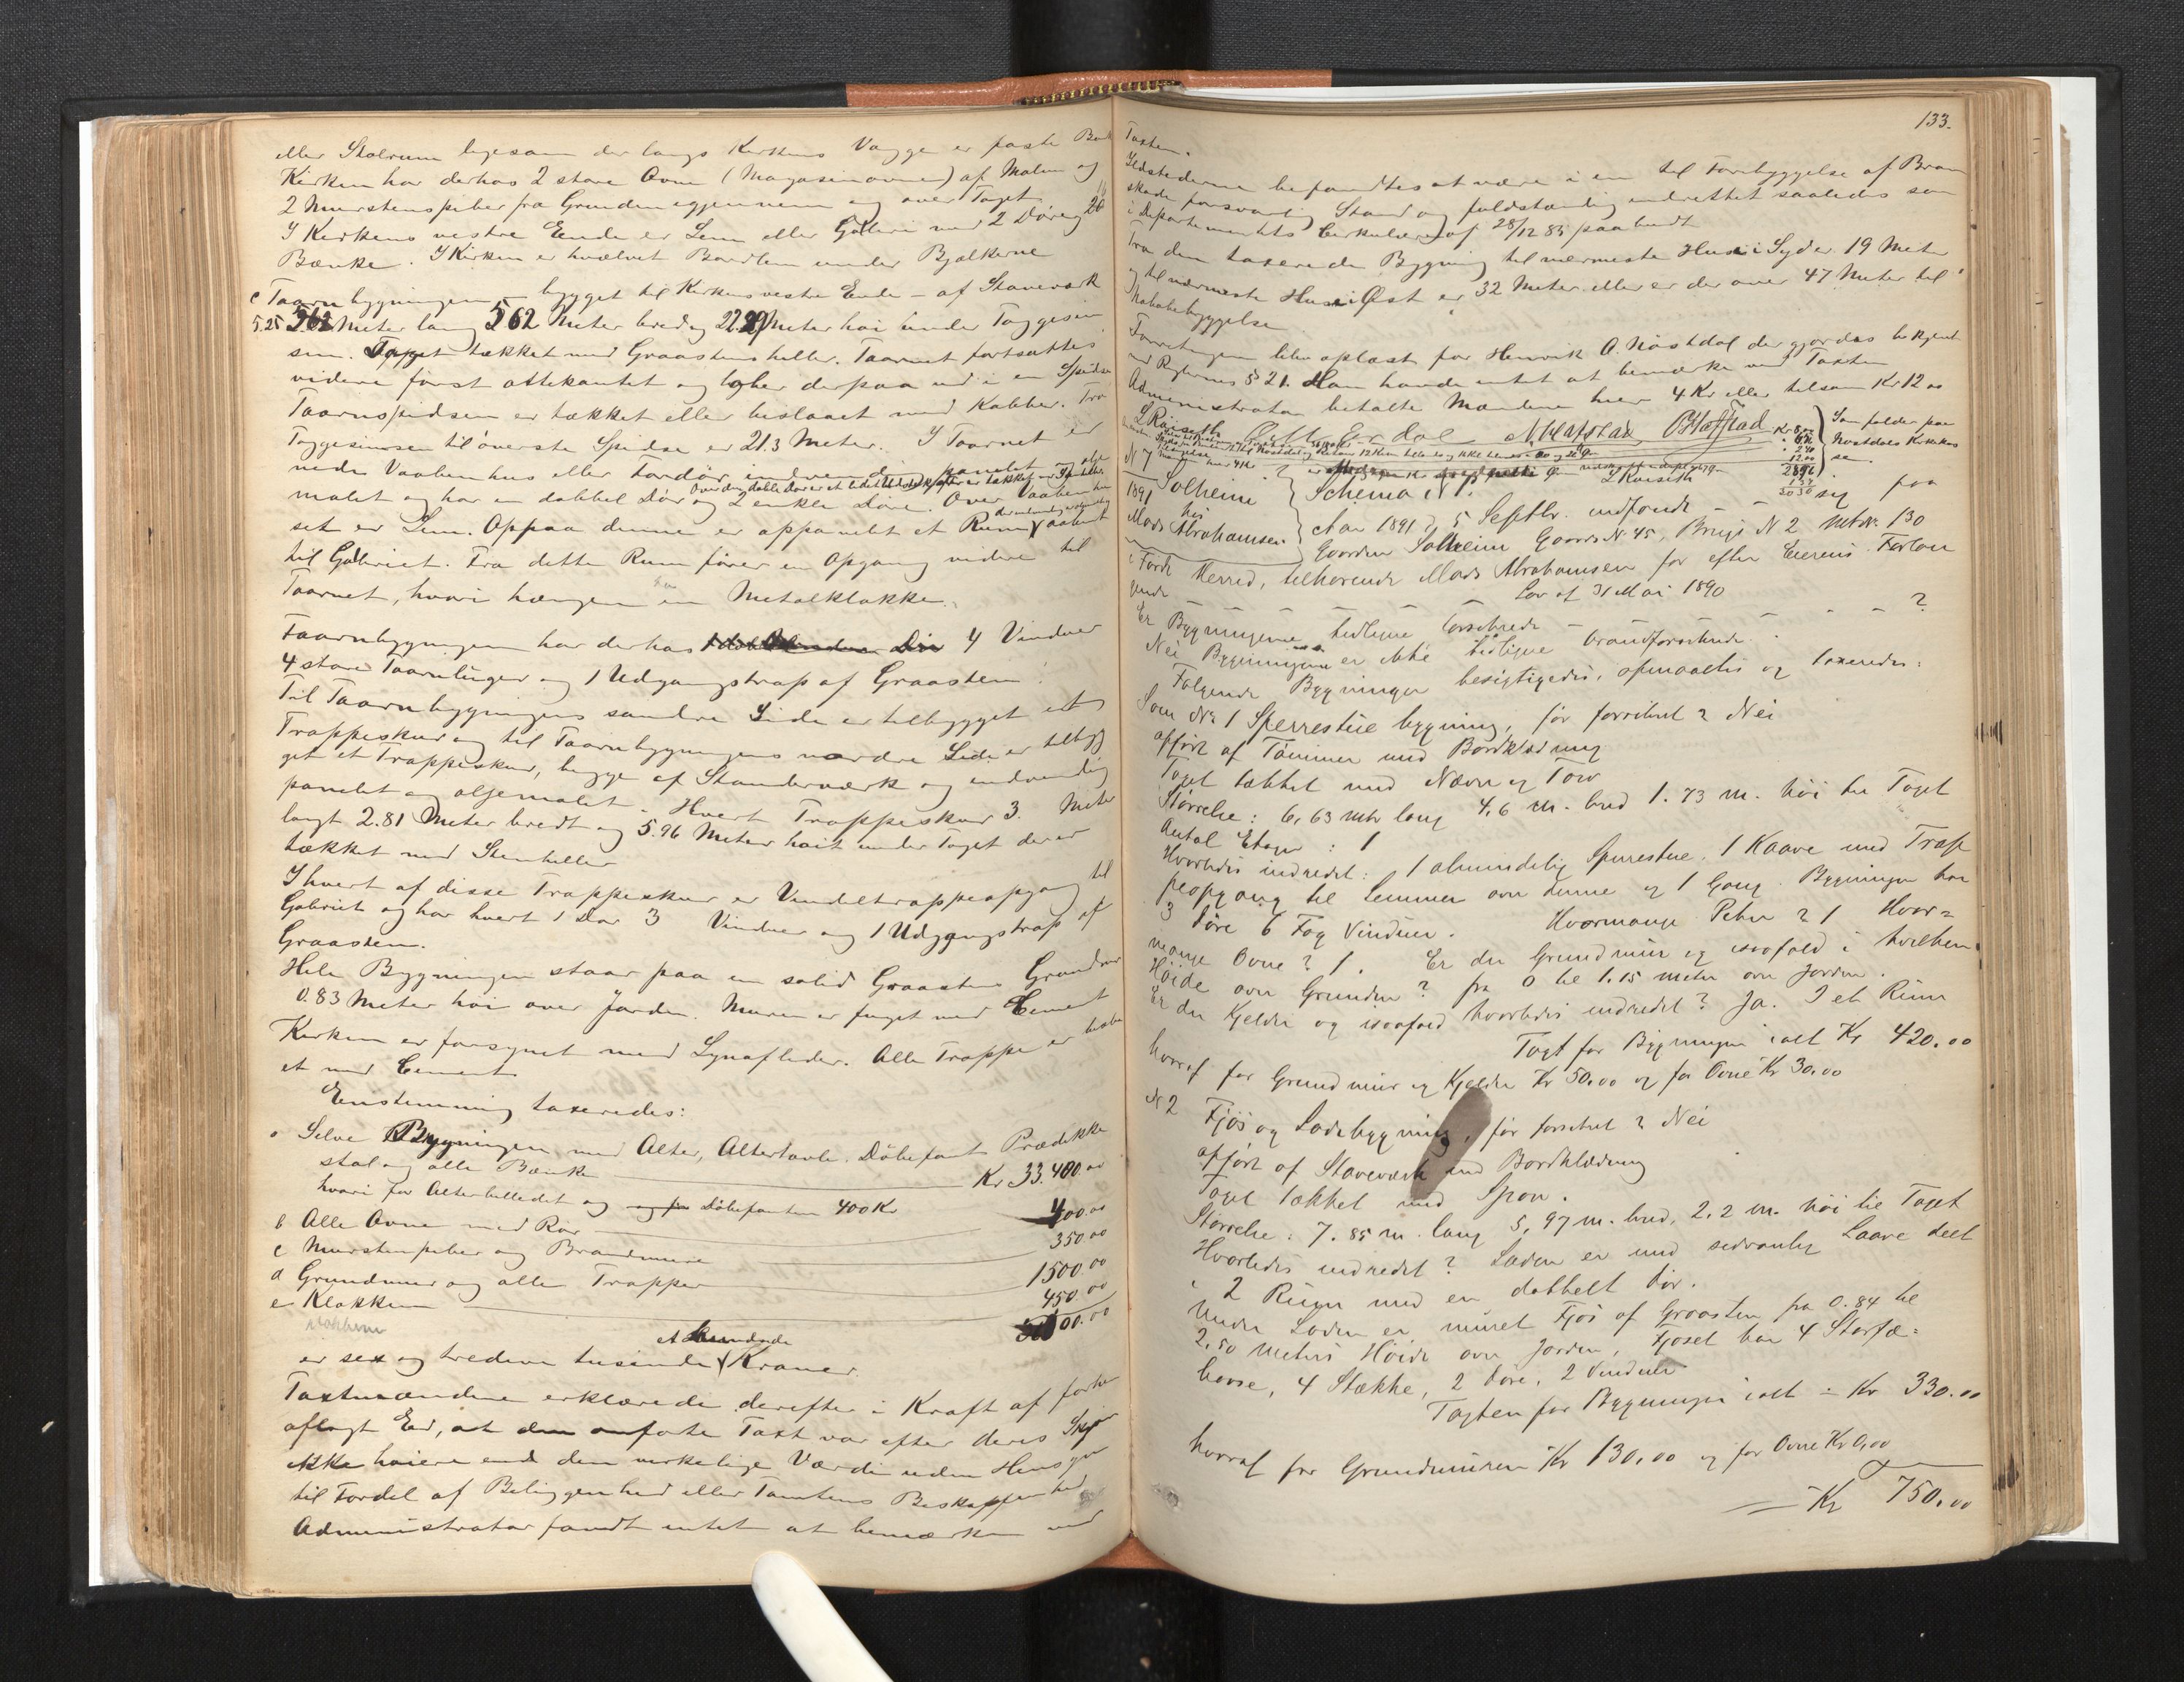 eller Stolerum ligesom der langs Kirkens Vægge er faste Bænk
Kirken har derhos 2 store Ovne (Magasinovne) af Malm og
2 Murstenspiber fra Grunden igjennem og over Taget
I Kirkens vestre Ende er Lem eller Galleri med 2 Döre og 20
Bænke. I Kirken er hvælvet Bordlem under Bjælkerne
c Taarnbygningen – bygget til Kirkens vestre Ende – af Staveværk
5.25 Meter lang 562 Meter bred og Meter höi under Taggesim
sen. Taget tækket med Graastensheller. Taarnet fortsættes
videre först ottekantet og löber derpaa ud i en Spidse
Taarnspidsen er tækket eller beslaaet med Kobber. Fra
Taggesimsen til överste Spidse er 21.3 Meter. I Taarnet er
nedre Vaabenhus eller Fordör indvendig panelet og olje
malet og har en dobbel Dör og 2 enkle Döre. Over Vaabenhu
set er Lem. Oppaa denne er oppanelet et Rum aabent
til Galleriet. Fra dette Rum förer en Opgang videre til
Taarnet, hvori hænger en Metalklokke.
Taarnbygningen har derhos 4 Vinduer
4 store Taarnluger og 1 Udgangstrap af Graasten
Til Taarnbygningens söndre Side er tilbygget et
Trappeskur og til Taarnbygningens nordre Side er tilbyg
get et Trappeskur, begge af Standerværk og indvendig
panelet og oljemalet. Hvert Trappeskur 3. Meter
langt 2.81 Meter bredt og 5.96 Meter höit under Taget der er
tækket med Stenheller
I hvert af disse Trappeskur er Vindeltrappeopgang til
Galeriet og har hvert 1 Dör 3 Vinduer og 1 Udgangstrap af
Graasten.
Hele Bygningen staar paa en solid Graastens Grundmur
0.83 Meter höi over Jorden. Muren er fuget med Cement
Kirken er forsynet med Lynafleder. Alle Trapper er
et med Cement
Enstemmig taxeredes:
a Selve Bygningen med Alter, Altertavle, Döbefont Prædikke
stol og alle Bænke Kr 33.400.00
hvori for Alterbilledet og Döbefonten 400 Kr
b Alle Ovne med Rör 400.00
c Murstenspiber og Brandmure 350.00
d Grundmur og alle Trapper 1500.00
e Klokken 450.00
et Hundrede
er sex og tredive tusinde Kroner.
Taxtmændene erklærede derefter i Kraft af forhen
aflagt Ed, at den anförte Taxt var efter deres Skjön
ikke höiere end den virkelige Værdi uden Hensyn
til Fordel af Beliggenhed eller Tomtens Beskaffenhed
Administrator fandt intet at bemærke ved
133.
Taxten.
Ildstederne befandtes at være i en til Forebyggelse af Bran
skade forsvarlig Stand og fuldstændig indrettet saaledes som
i Departementets Cirkulære af 28/12 85 paabudt
Fra den taxerede Bygning til nærmeste Huse i Syd er 19 Meter
og til nærmeste Huse i Öst er 32 Meter eller er der over 47 Meter til
Nabobebyggelse
Forretningen blev oplæst for Henrik O. Nöstdal der gjordes bekjent
med Reglernes § 21. Han havde intet at bemærke ved Taxten
Administrator betalte Mændene hver 4 Kr eller tilsam Kr 12 00
L Kvisetk Som falder paa
Nöstdals Kirkekas
se.
N 7
1891
Solheim
hos
Mads Abrahamsen
Schema N 1.
Aar 1891 d. 5 Septbr. indfandt – – sig paa
Gaarden Solheim Gaards N. 45, Brugs N 2 Mtr. N. 130
i Förde Herred, tilhörende Mads Abrahamsen for efter Eierens Forlan
gende Lov af 31 Mai 1890
Er Bygningerne tidligere forsikrede – – – – ?
Nei Bygningerne er ikke tidligere brandforsikrede.
Fölgende Bygninger besigtigedes, opmaaltes og taxeredes:
Som No 1 Sperrestuebygning, för forsikret? Nei
opfört af Tömmer med Bordklædning
Taget tækket med Næver og Torv
Störrelse: 6,63 mtr lang 4,6 m. bred 1.73 m. höi til Taget
Antal Etager: 1
Hvorledes indredet: 1 almindelig Sperrestue. 1 Kaave med Trap
peopgang til Lemmen over denne og 1 Gang. Bygningen har
3 Döre 6 Fag Vinduer. Hvormange Piber? 1 Hvor=
mange Ovne? 1. Er der Grundmur og isaafald i hvilken
Höide over Grunden? fra 0 til 1.15 meter over Jorden.
Er der Kjelder og isaafald hvorledes indredet? Ja. I et Rum
Taxt for Bygningen ialt Kr 420.00
hvoraf for Grundmur og Kjelder Kr 50.00 og for Ovne Kr 30.00
N 2 Fjös og Ladebygning, för forsikret? Nei
opfört af Staveværk med Bordklædning
Taget tækket med Spon.
Störrelse: 7.85 m. lang 5,97 m. bred, 2.2 m. höi til Taget
Hvorledes indredet? Laden er med sedvanlig Laave delt
i 2 Rum med en dobbelt Dör.
Under Laden er muret Fjös af Graasten fra 0.84 til
2.50 meters Höide over Jorden, Fjöset har 4 Storfæ=
baase, 4 Stække, 2 Döre, 2 Vinduer
Taxten for Bygningen ialt = Kr 330.00
hvoraf for Grundmuren Kr 130.00 og for Ovne Kr 0,00
Kr 750.00